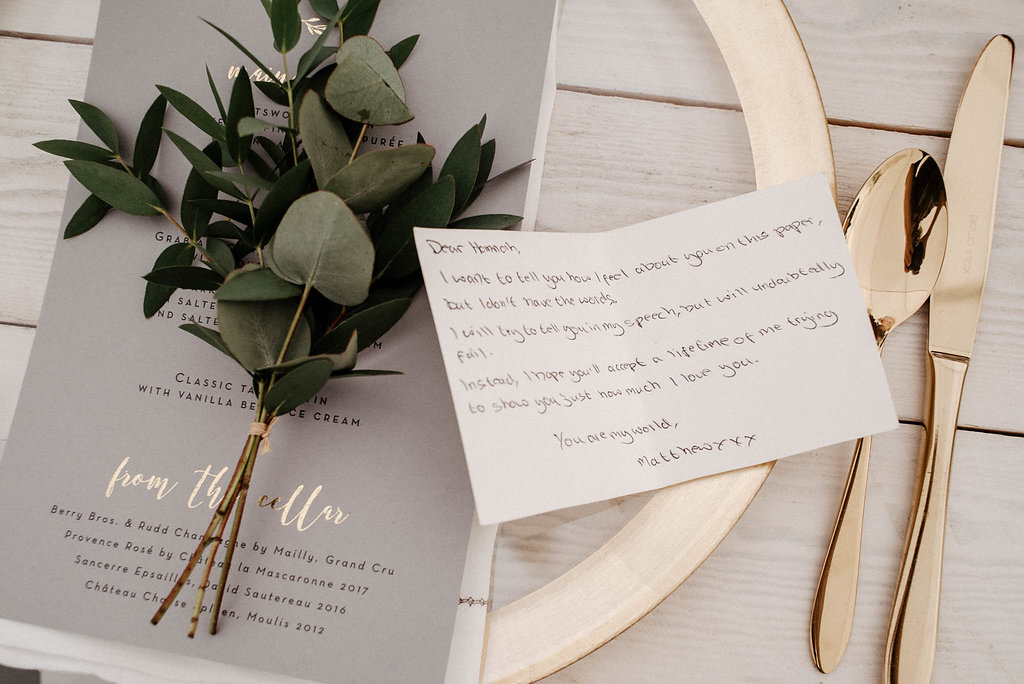 main
PURÉE
AND SALTE
CLASSIC TA TIN
WITH VANILLA BE CE CREAM
from the cellar
Berry Bros. & Rudd Champagne by Mailly, Grand Cru
Provence Rosé by Château la Mascaronne 2017
Sancerre Epsailles, David Sautereau 2016
Château Chasse-Spleen, Moulis 2012
Dear Hannah,
I want to tell you how I feel about you on this paper,
but I don't have the words.
I will try to tell you in my speech, but will undoubtedly
fail.
Instead, I hope you'll accept a lifetime of me trying
to show you just how much I love you.
You are my world,
Matthew xxx